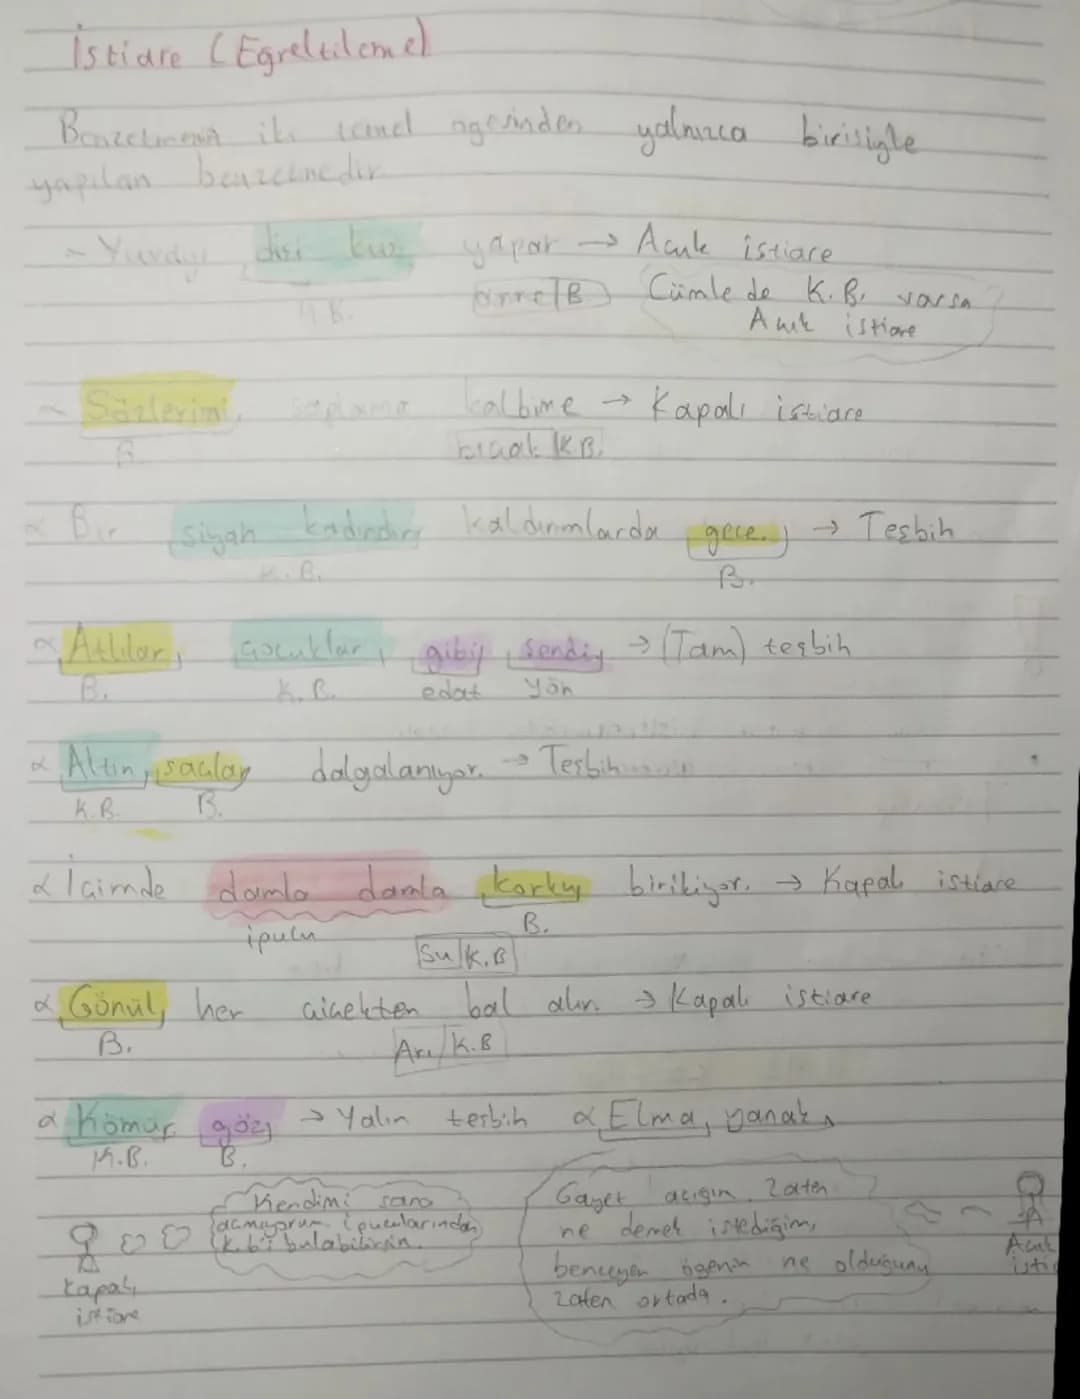 İstiare (Eğretileme)
Benzetmenin iki temel ögesinden yalnızca birisiyle
yapılan benzetmedir.
~ Yuvayı dişi kuş yapar → Açık istiare
K.B. anne/B Cümlede K.B. varsa
Açık istiare
~ Sözlerini saplama kalbime → Kapalı istiare
B. bıçak/K.B.
α Bir siyah kadındır kaldırımlarda gece. → Teşbih
K.B. B.
α Atlılar, çocuklar gibi şendi → (Tam) teşbih
B. K.B. edat yön
α Altın saçlar dalgalanıyor. → Teşbih
K.B. B.
α İçimde damla damla korku birikiyor. → Kapalı istiare
ipucu B.
Su/K.B
α Gönül her çiçekten bal alır. → Kapalı istiare
B. Arı/K.B
α Kömür göz → Yalın teşbih α Elma yanak
K.B. B.
Kendimi sana
açmıyorum ipucularından
k.b'i bulabilirsin.
Kapalı
istiare
Gayet açığım. Zaten
ne demek istediğim,
benzeyen ögenin ne olduğunu
zaten ortada.
Açık